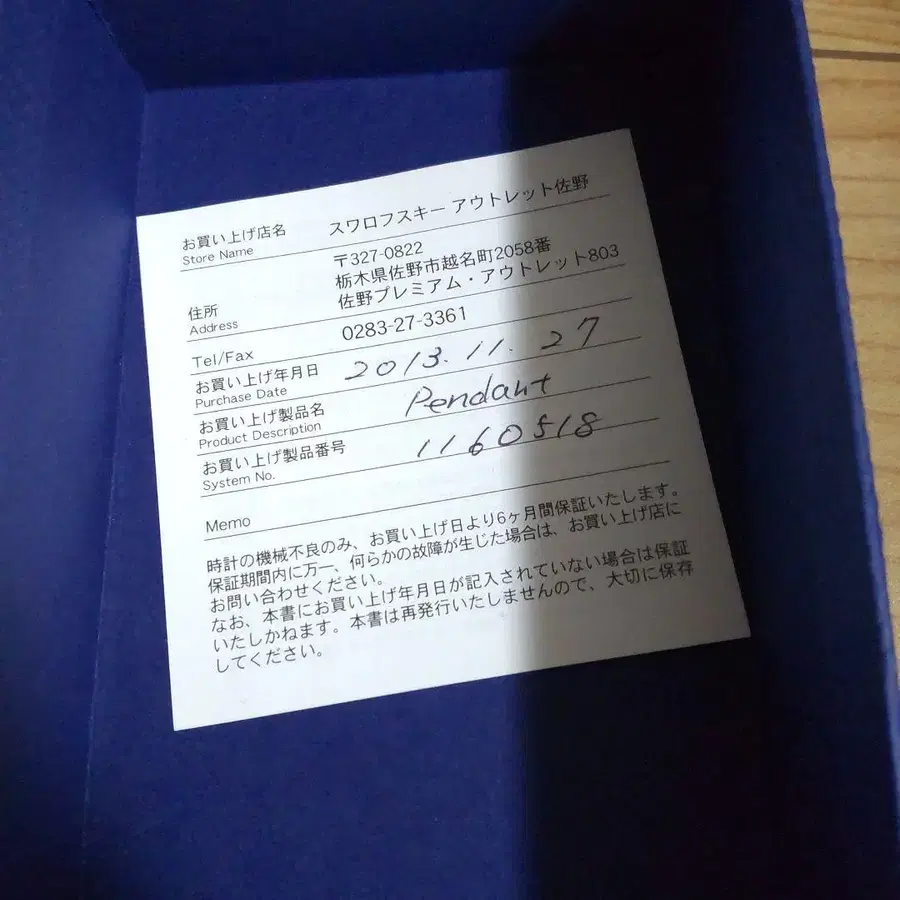 お買い上げ店名 スワロフスキー アウトレット佐野
Store Name
〒327-0822
栃木県佐野市越名町2058番
住所 佐野プレミアム・アウトレット803
Address
Tel/Fax 0283-27-3361
お買い上げ年月日 2013.11.27
Purchase Date
お買い上げ製品名 Pendant
Product Description
お買い上げ製品番号 1160518
System No.
Memo
時計の機械不良のみ、お買い上げ日より6ヶ月間保証いたします。
保証期間内に万一、何らかの故障が生じた場合は、お買い上げ店に
お問い合わせください。
なお、本書にお買い上げ年月日が記入されていない場合は保証
いたしかねます。本書は再発行いたしませんので、大切に保存
してください。